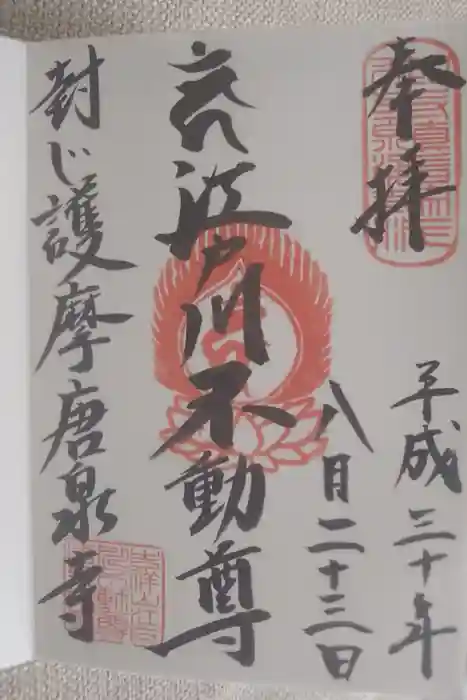 奉拝
平成三十年
八月二十三日
江戸川不動尊
封じ護摩唐泉寺